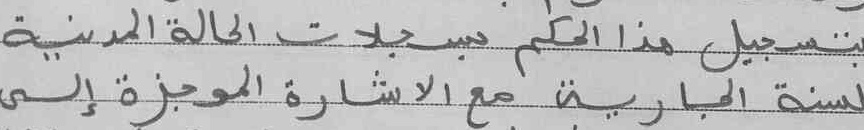 بتسجيل هذا الحكم بسجلات الحالة المدنية
للسنة الجارية مع الاشارة الموجزة إلى